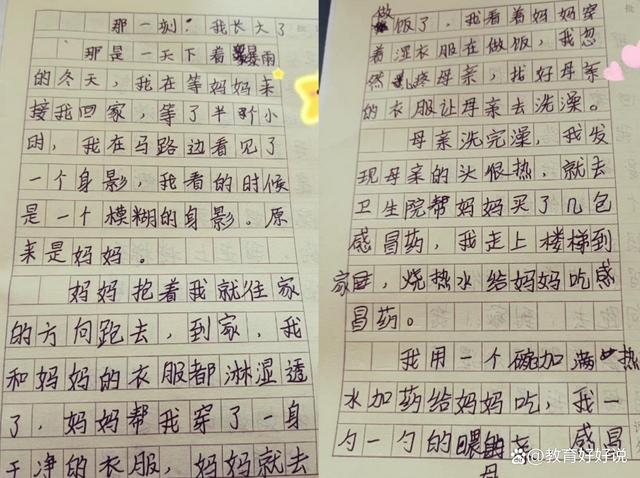 那一刻，我长大了
那是一天下着暴雨
的冬天，我在等妈妈来
接我回家，等了半个小
时，我在马路边看见了
一个身影，我看的时候
是一个模糊的身影。原
来是妈妈。
妈妈抱着我就往家
的方向跑去，到家，我
和妈妈的衣服都淋湿透
了，妈妈帮我穿了一身
干净的衣服，妈妈就去
做饭了，我看着妈妈穿
着湿衣服在做饭，我忽
然心疼母亲，找好母亲
的衣服让母亲去洗澡。
母亲洗完澡，我发
现母亲的头恨热，就去
卫生院帮妈妈买了几包
感冒药，我走上楼梯到
家，烧热水给妈妈吃感
冒药。
我用一个碗加满热
水加药给妈妈吃，我一
勺一勺的喂母亲，感冒
教育好好说